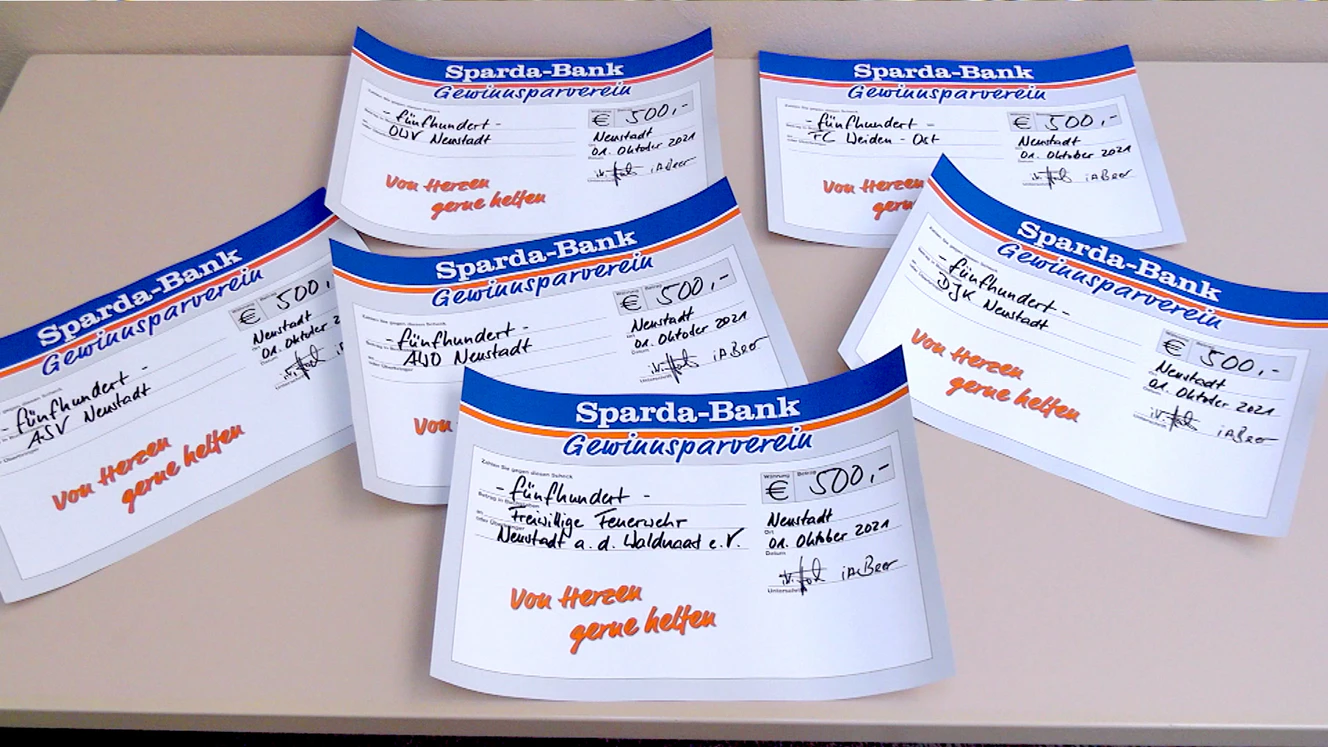 Sparda-Bank
Gewinnsparverein
Zahlen Sie gegen diesen Scheck
- fünfhundert -
OWV Neustadt
Währung Betrag
€ 500,-
Neustadt
01. Oktober 2021
i.V. iABeer
Von Herzen
gerne helfen
Sparda-Bank
Gewinnsparverein
Zahlen Sie gegen diesen Scheck
- fünfhundert -
FC Weiden - Ost
€ 500,-
Neustadt
01. Oktober 2021
i.V. iABeer
Von Herzen
Sparda-Bank
Gewinnsparverein
- fünfhundert -
ASV Neustadt
oder Überbringer
€ 500,
Neustadt
01. Oktober 2
Von Herzen
gerne helfen
Sparda-Bank
Gewinnsparverein
Zahlen Sie gegen diesen Scheck
- fünfhundert -
AWO Neustadt
oder Überbringer
Währung Betrag
€ 500,-
Neustadt
01. Oktober 2021
i.V. iABeer
Von
Sparda-Bank
Gewinnsparverein
- fünfhundert -
DJK Neustadt
€ 500,-
Neustadt
01. Oktober 2021
i.V. iABeer
Von Herzen
gerne helfen
Sparda-Bank
Gewinnsparverein
Zahlen Sie gegen diesen Scheck
- fünfhundert -
Betrag in Buchstaben
an Freiwillige Feuerwehr
oder Überbringer
Neustadt a. d. Waldnaad e.V.
Währung Betrag
€ 500,-
Neustadt
Ort
01. Oktober 2021
Datum
i.V. iABeer
Unterschrift
Von Herzen
gerne helfen